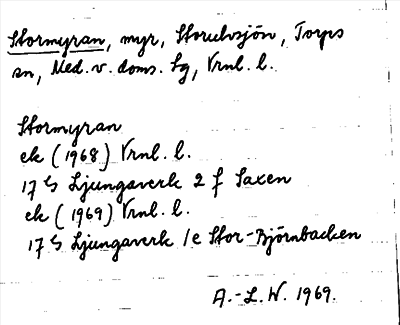 Stormyran, myr, Storulvsjön, Torps
sn, Med. v. doms. sg, Vrnl. l.
Stormyran
ek (1968) Vrnl. l.
17 G Ljungaverk 2 f Saxen
ek (1969) Vrnl. l.
17 G Ljungaverk 1e Stor-Björnbacken
A.-L.W. 1969.